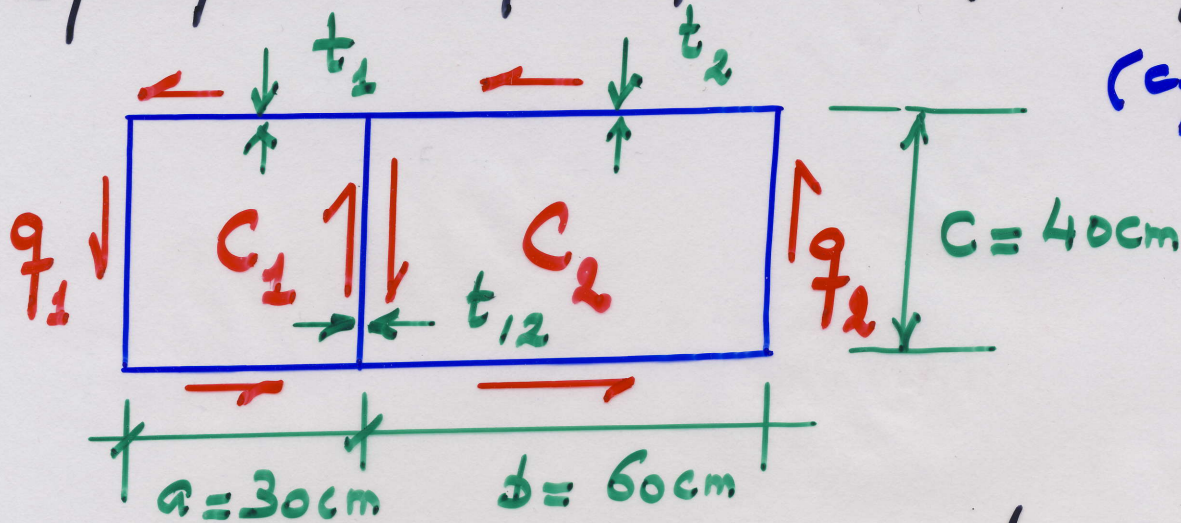 t₁
t₂
q₁
C₁
C₂
q₂
C = 40cm
t₁₂
a = 30cm
b = 60cm